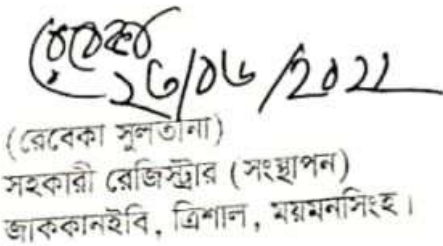 রেবেকা
২৬/০৬/২০২২
(রেবেকা সুলতানা)
সহকারী রেজিস্ট্রার (সংস্থাপন)
জাককানইবি, ত্রিশাল, ময়মনসিংহ।